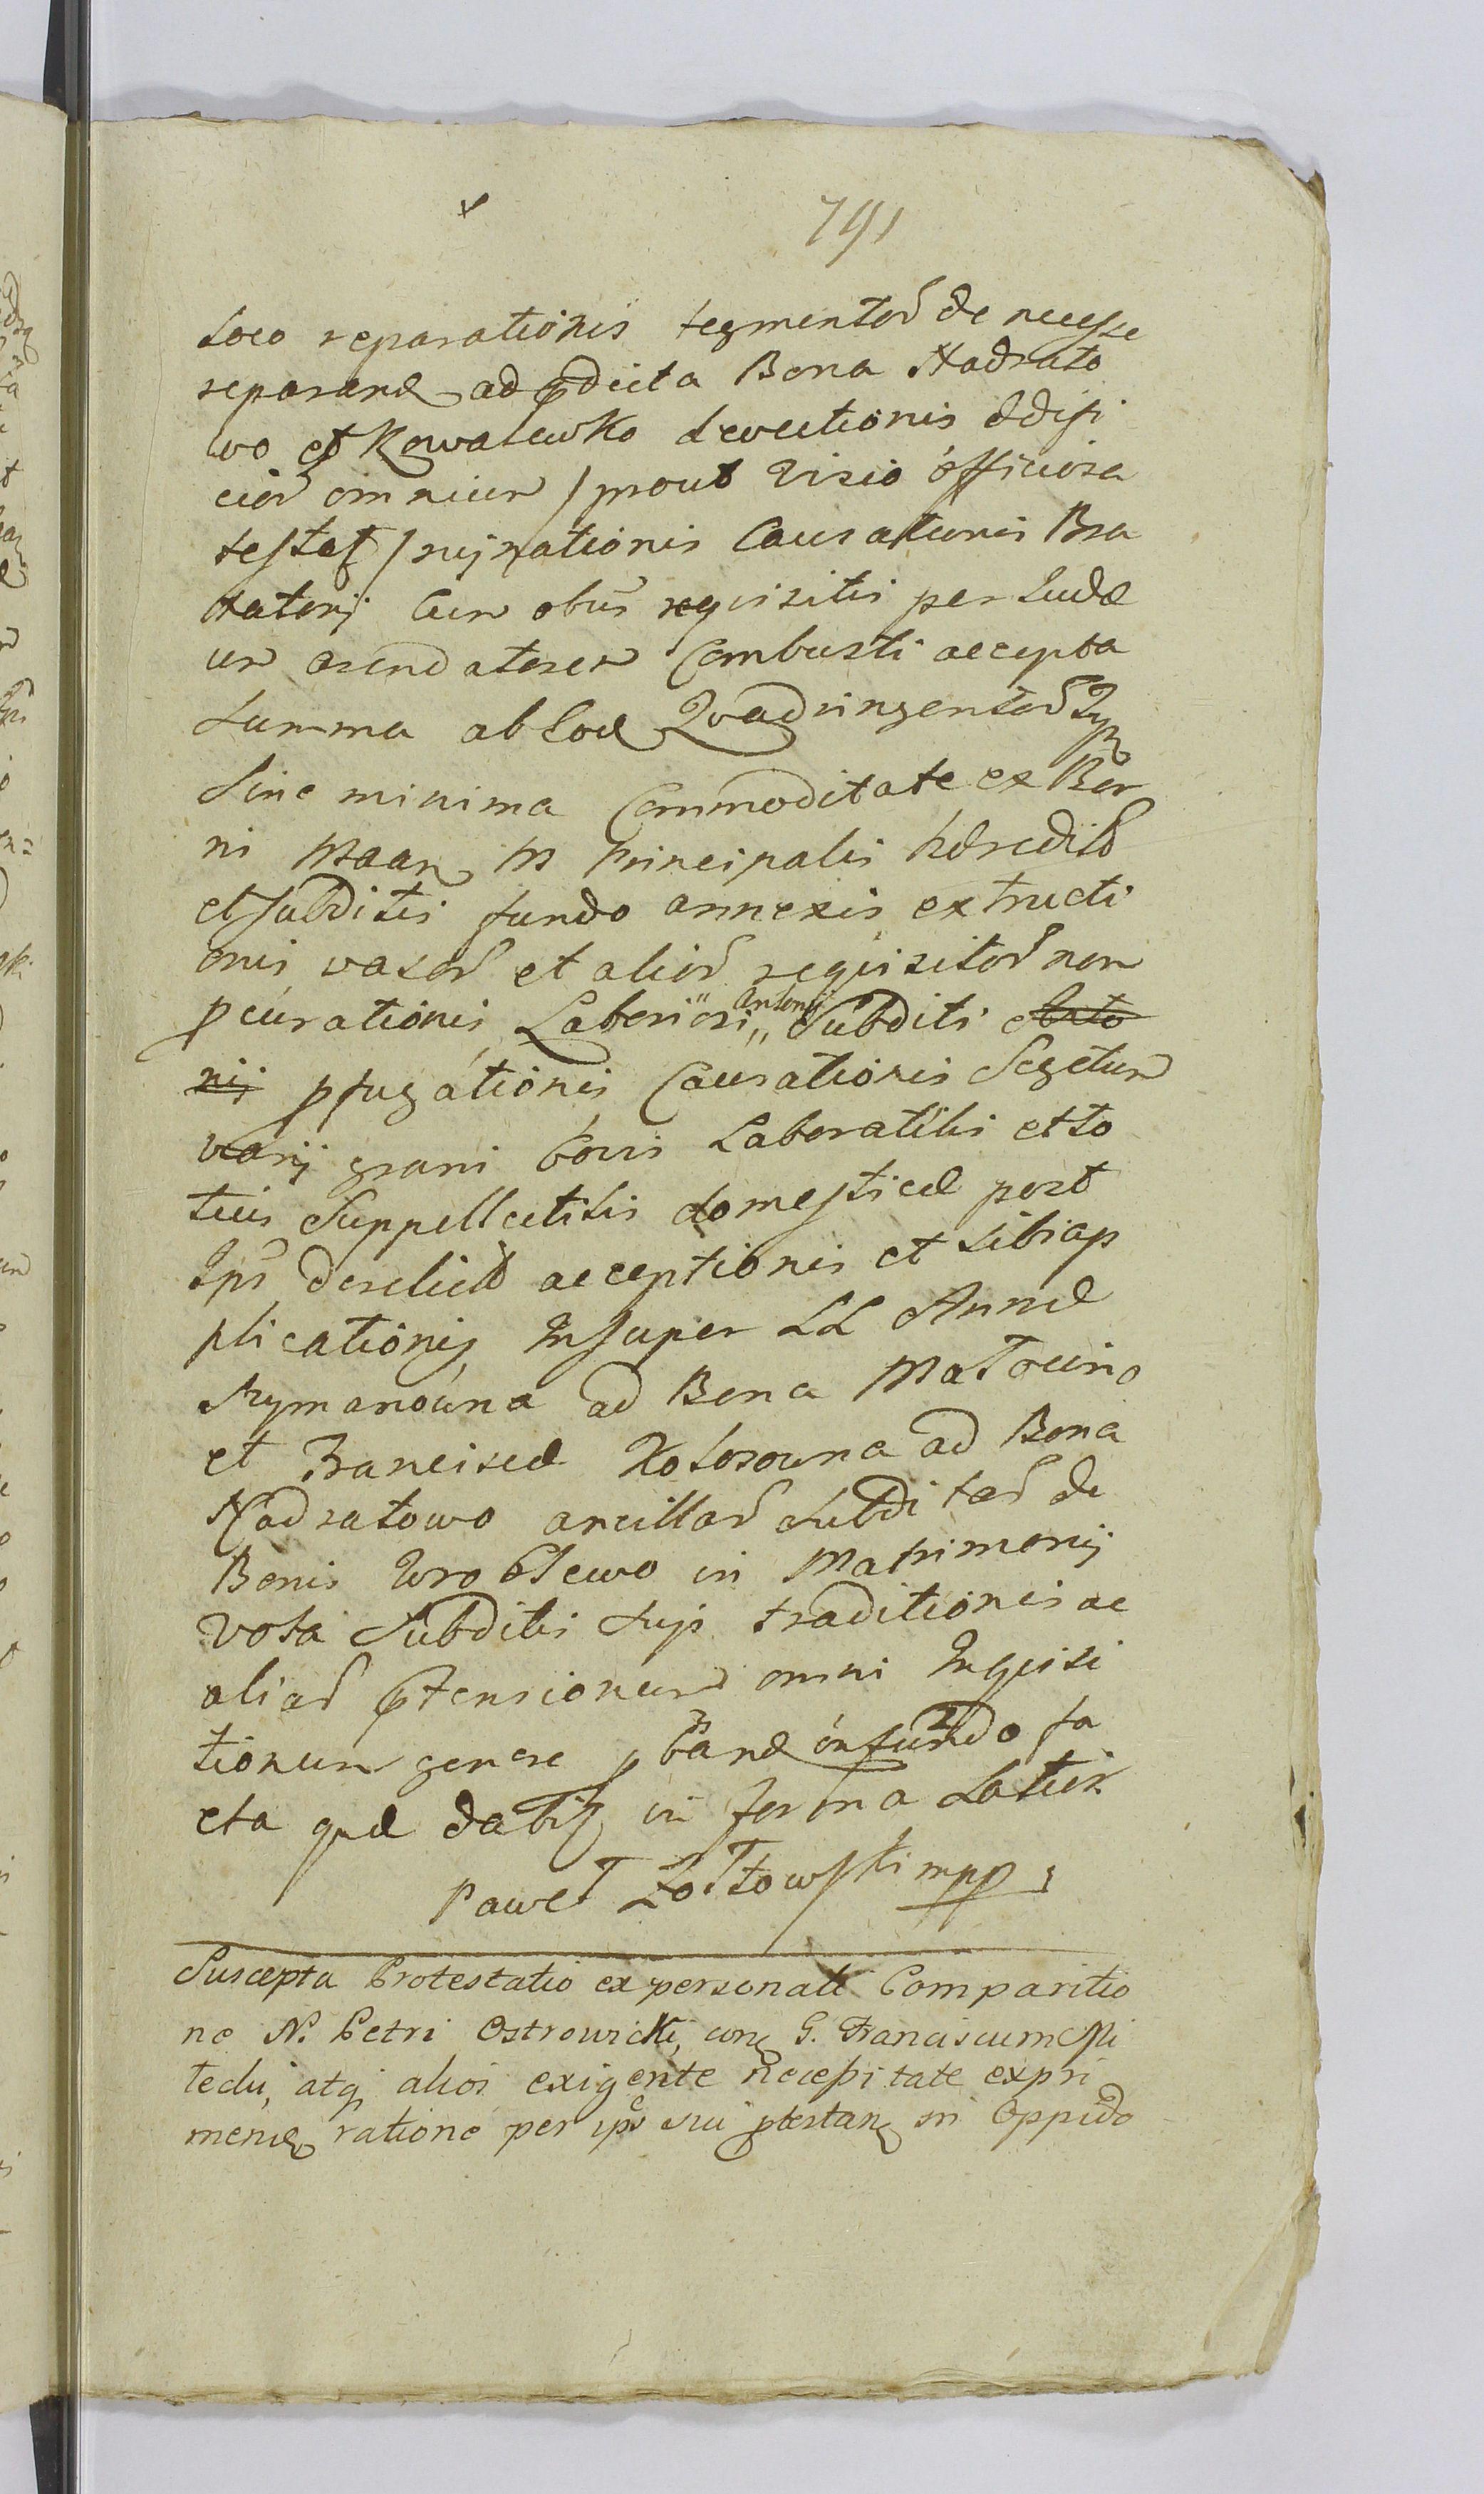 791
loco reparationis tegmentor de necesse
reparand ad pdicta Bona Nadrato
wo et Kowalewko devectionis ædifi
cior omnium / prout Visio officiosa
testat / ruinationis Causationis Bra
xatorij Cum obus requisitis per Judæ
um arendatorem Combusti accepta
Summa ab Eod Quadringentor
Sine minima Commoditate ex Bo
nis principalis hæredit
et subditis fundo annexis extructi
onis vasor et alior requisitor non
pcurationis Laboriosi Antonij Subditi Anto
nij pfugationis Causationis Segetum
varij grani bovis Laboratilis et to
tius Suppellectilis domesticæ post
Ips derelict acceptionis et sibi ap
plicationis Insuper LL Annæ
Szymanowna ad Bona Matocino
et Franciscæ Kotosowna ad Bona
Nadratowo ancillar subditar de
Bonis Wroblewo in Matrimonij
vota Subditis suis traditionis ac
aliar ptensionum omni Inquisi
tionum genere pband in fundo fa
cta quæ dabit in forma Latius
Paweł Zołtowski mpp
Suscepta Protestatio ex personali Comparitio
ne N. Petri Ostrowicki, con G. Franciscum
atq alios exigente necessitate expri
mend ratione per ips sui ptestan in Oppido